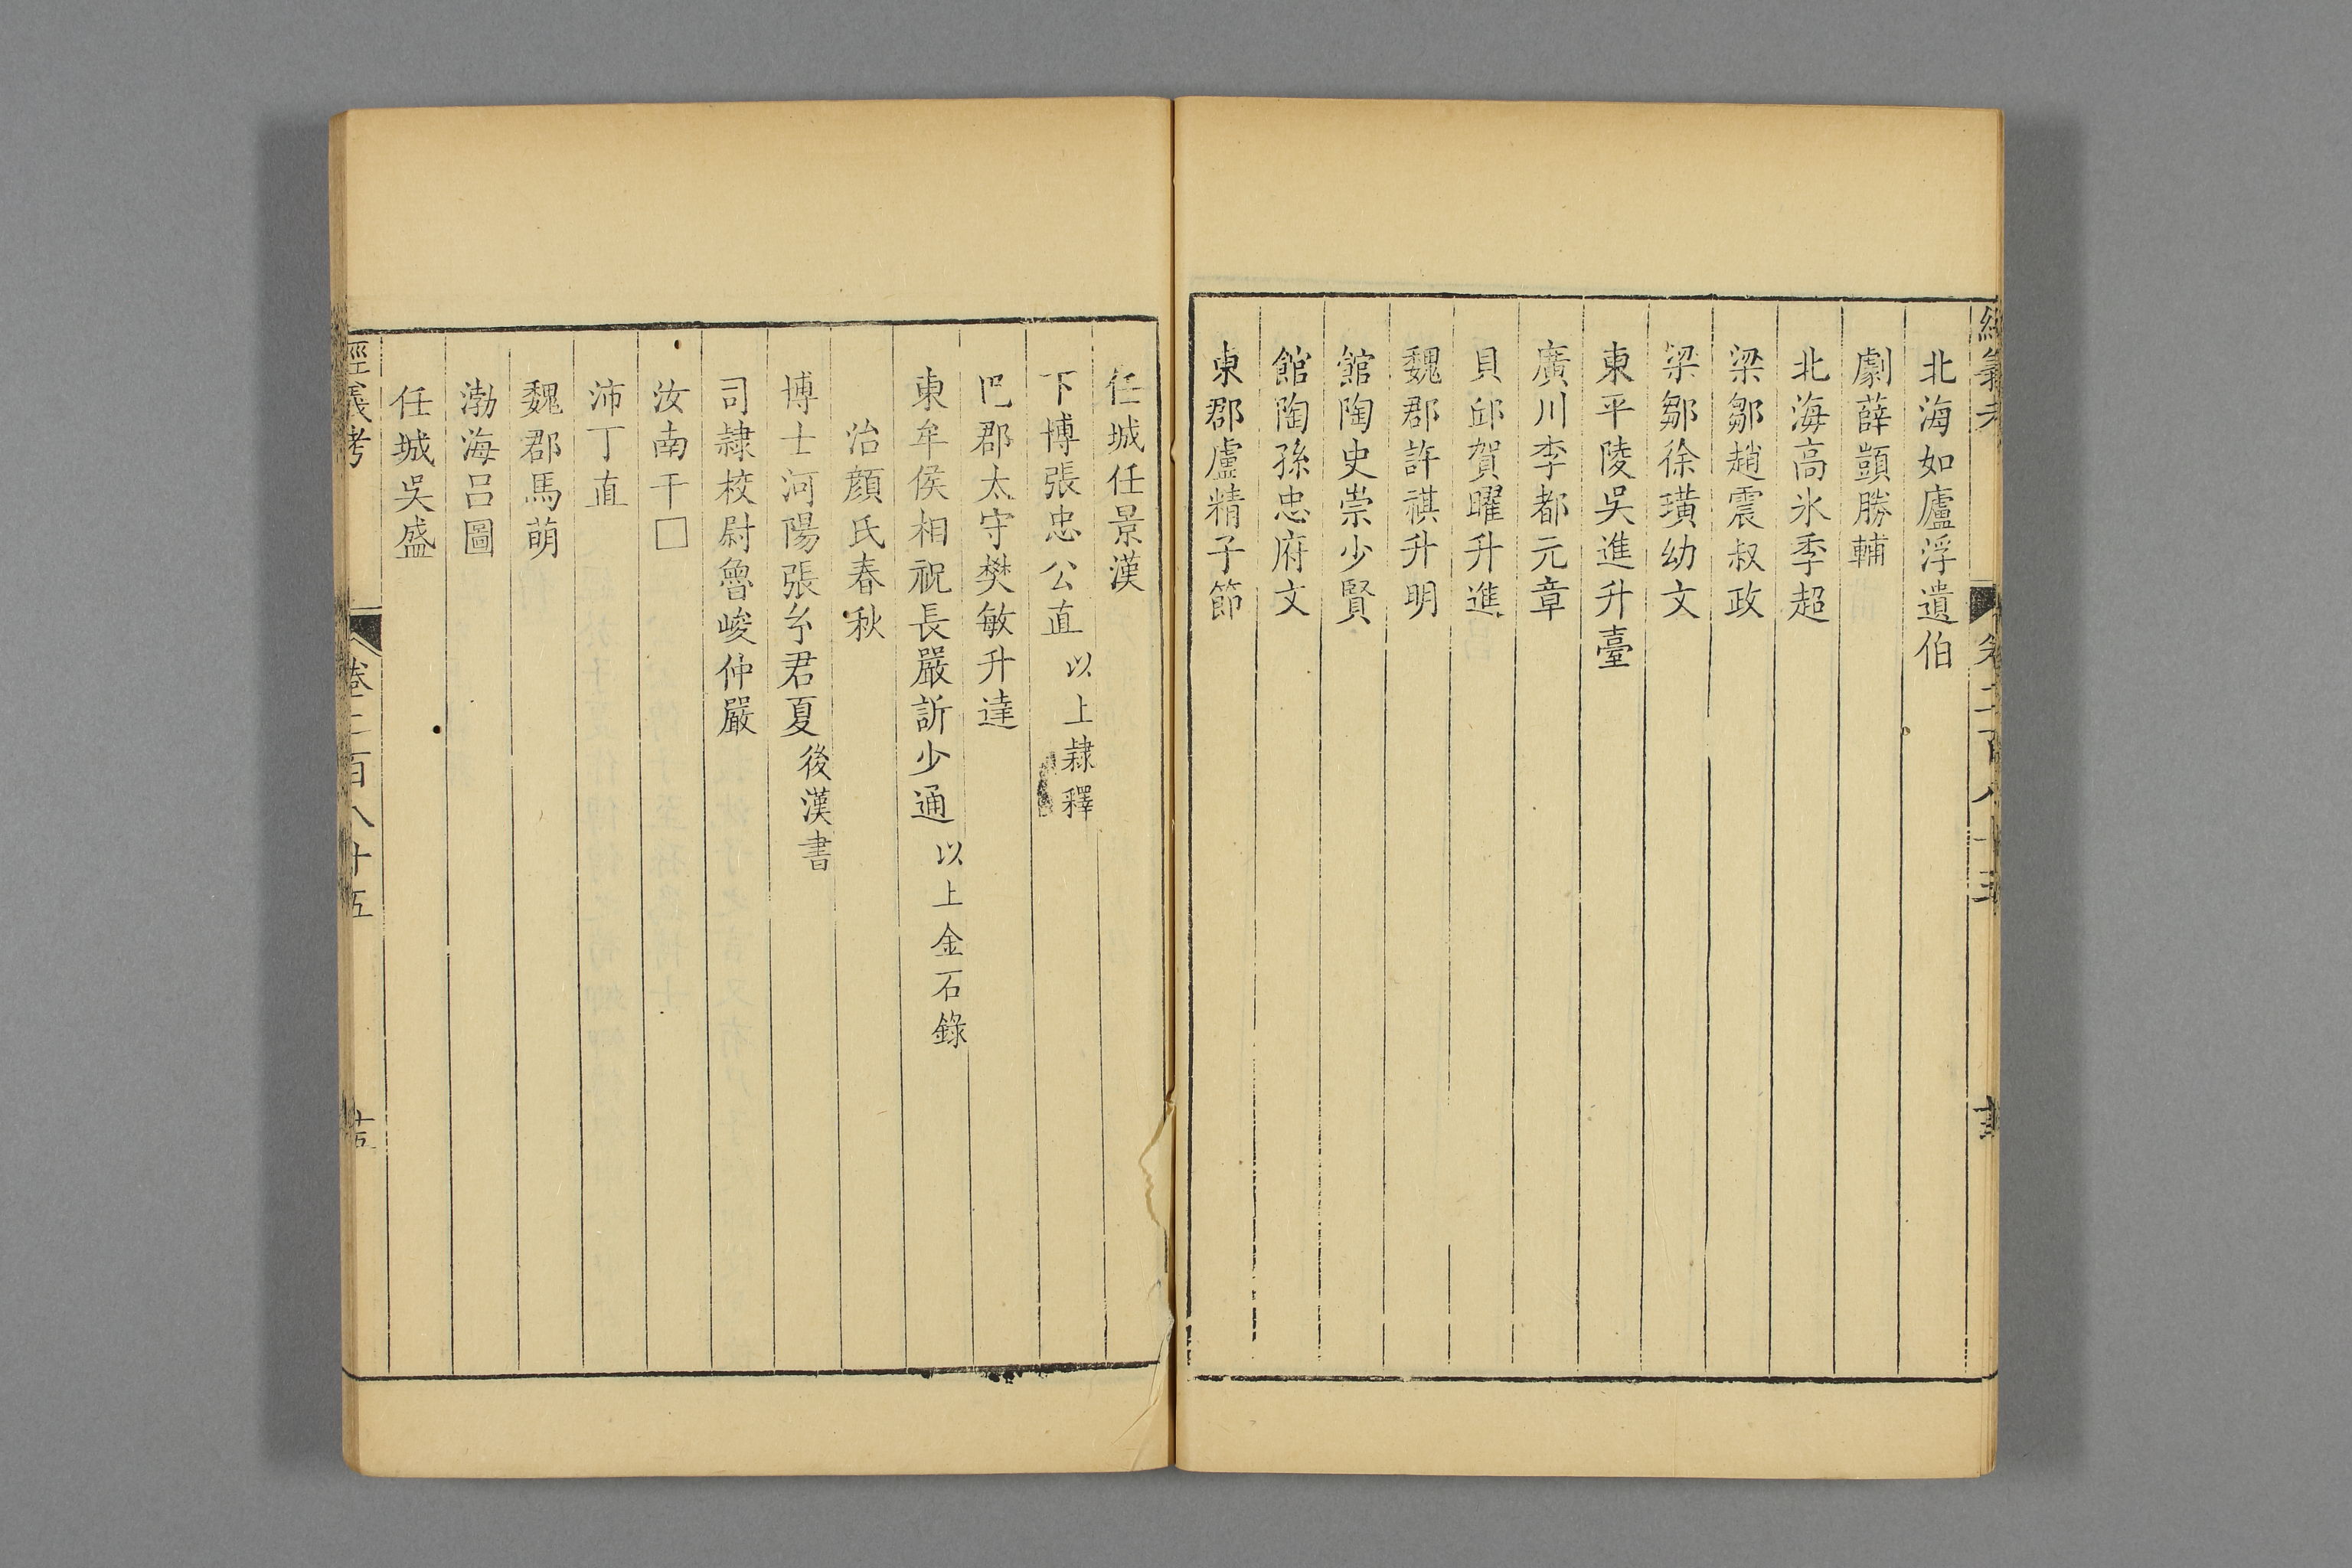 北海如廬浮遺伯
劇薛顗勝輔
北海高氷季超
梁鄒趙震叔政
梁鄒徐璜幼文
東平陵吳進升臺
廣川李都元章
貝邱賀曜升進
魏郡許祺升明
館陶史崇少賢
館陶孫忠府文
東郡盧精子節
任城任景漢
下博張忠公直 以上隸釋
巴郡太守樊敏升達
東牟侯相祝長嚴訢少通 以上金石錄
治顏氏春秋
博士河陽張玄君夏 後漢書
司隸校尉魯峻仲嚴
汝南干□
沛丁直
魏郡馬萌
渤海呂圖
任城吳盛
經義考 卷二百八十五 十五